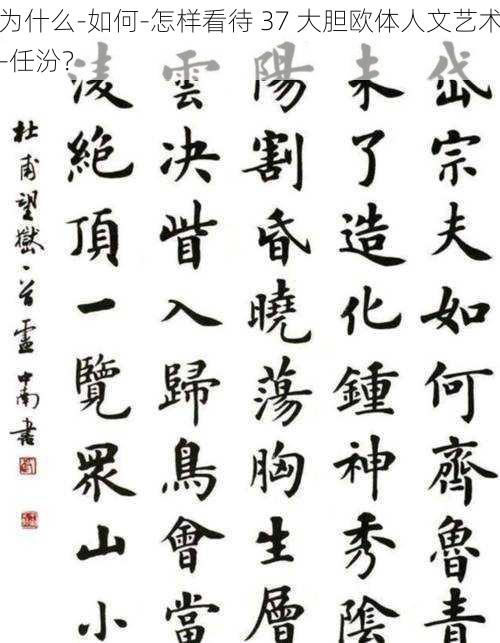 为什么-如何-怎样看待 37 大胆欧体人文艺术
-任汾？
岱宗夫如何齊魯青
未了造化鍾神秀陰
陽割昏曉蕩胸生層
雲决眥入歸鳥會當
凌絕頂一覽眾山小
杜甫望嶽一首盧中南書